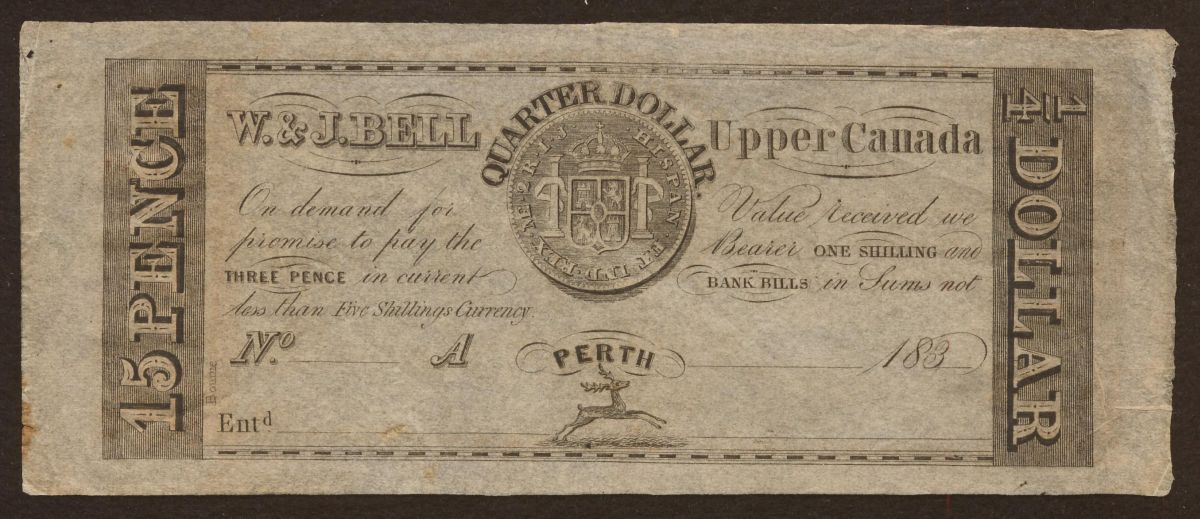 15 PENCE
W. & J. BELL
QUARTER DOLLAR.
Upper Canada
1/4 DOLLAR
On demand for Value received we
promise to pay the Bearer ONE SHILLING and
THREE PENCE in current BANK BILLS in Sums not
less than Five Shillings Currency.
HISPAN ET IND
N.º A PERTH 183
Bourne
Entd